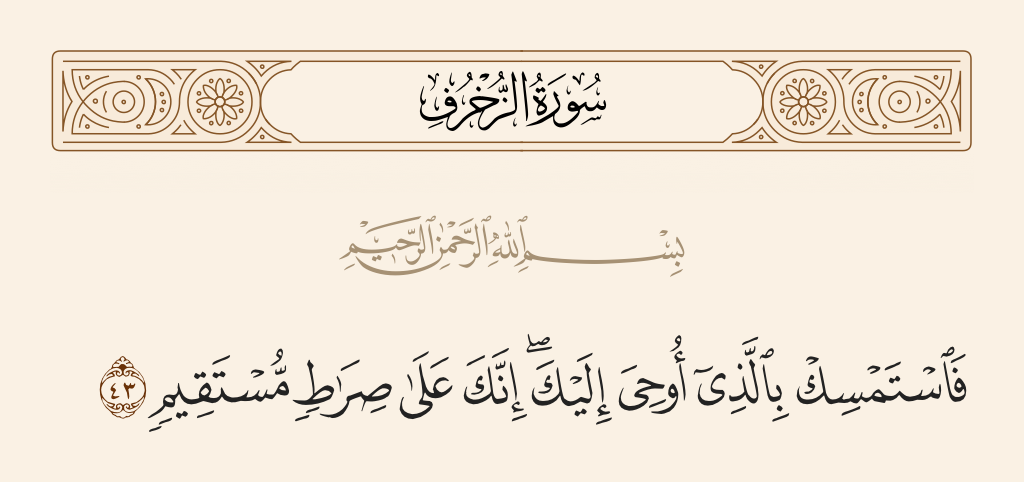 سُورَةُ الزُّخْرُفِ
بِسْمِ ٱللَّهِ ٱلرَّحْمَٰنِ ٱلرَّحِيمِ
فَٱسْتَمْسِكْ بِٱلَّذِىٓ أُوحِىَ إِلَيْكَ ۖ إِنَّكَ عَلَىٰ صِرَٰطٍ مُّسْتَقِيمٍ ٤٣